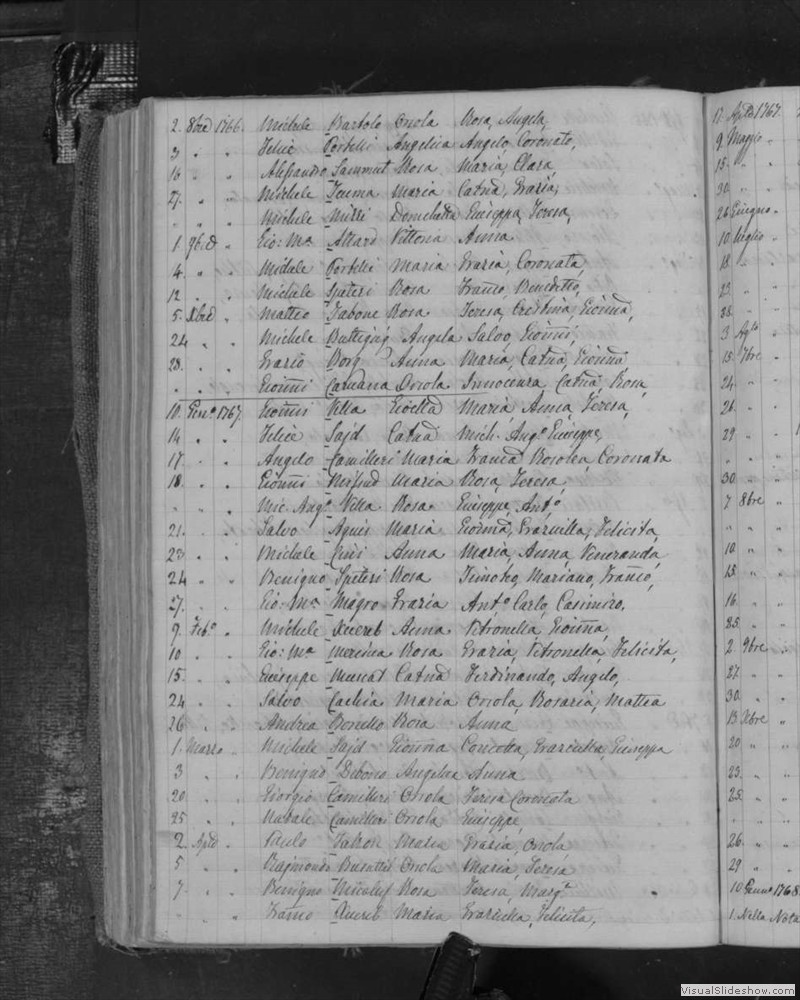 2. 8bre 1766. Michele Bartolo Orsola Rosa, Angela,
3 " " Felice Corbelli Angelica Angelo, Coronato,
16 " " Alessandro Sammut Rosa Maria, Clara
27. " " Michele Maria Catna, Grazia,
" " " Michele Mizzi Domchetta Giuseppa, Teresa,
1. 9b.e " Gio: Ma Attard Vittoria Anna
4. " " Michele Corbelli Maria Grazia, Coronata,
12 " " Michele Spiteri Rosa Franco, Benedetto,
5. Xbre " Matteo Tabone Rosa Teresa, Cristina, Gionna,
24 " " Michele Buttigieg Angela Salvo, Gionni,
28. " " Grazio Borg Anna Maria, Catna, Gionna
" " " Gionni Caruana Orsola Innocenza, Catna, Rosa,
10. Genn. 1767. Gionni Vella Maria, Anna, Teresa,
14 " " Felice Sajd Catna Mich. Ango Giuseppe,
17. " " Angelo Camilleri Maria Franca Rosolea Coronata
18. " " Gionni Maria Rosa, Teresa,
" " " Mic. Ango Vella Rosa Giuseppe, Anto
21. " " Salvo Agius Maria Gionna, Graziulla, Felicita,
23 " " Michele Cini Anna Maria, Anna, Veneranda,
24 " " Benigno Spiteri Rosa Timoteo, Mariano, Franco,
27. " " Gio: Ma Magro Grazia Anto Carlo, Casimiro,
9. Febo " Michele Xuereb Anna Petronella, Gionna,
10 " " Gio: Ma Mercieca Rosa Grazia, Petronella, Felicita,
15. " " Giuseppe Muscat Catna Ferdinando, Angelo,
24 " " Salvo Cachia Maria Orsola, Rosaria, Mattea
26 " " Andrea Bonello Rosa Anna
1. Marzo " Michele Sajd Gionna Concetta, Graziulla, Giuseppa
3 " " Benigno Debono Angelica Anna
20. " " Giorgio Camilleri Orsola Teresa Coronata
25 " " Natale Camilleri Orsola Giuseppe,
2. Aple " Paulo Falzon Maria Grazia, Orsola
5 " " Rajmondo Orsola Maria, Teresa
7. " " Benigno Micalef Rosa Teresa, Marga
" " " Franco Xuereb Maria Graziulla, Felicita,
17. Aple 1767.
9. Maggio "
15. " "
30. " "
26 Giugno "
10. luglio "
18. " "
23. " "
28. " "
3 Agto "
15. 7bre "
24. " "
26. " "
29. " "
" " "
30. " "
7 8bre "
" " "
10. " "
15. " "
16. " "
25. " "
2. 9bre "
27. " "
30. " "
13 Xbre "
20 " "
23. " "
25. " "
" " "
26. " "
29 " "
10 Genno 1768
1. Nella Nota
VisualSlideshow.com